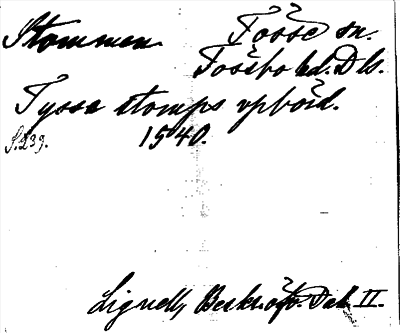 Stommen Tössö sn.
Tössbo hd. Dls.
Tyssa stomps vpbörd.
S. 239. 1540.
Lignell, Beskr. öfv. Dal. II.